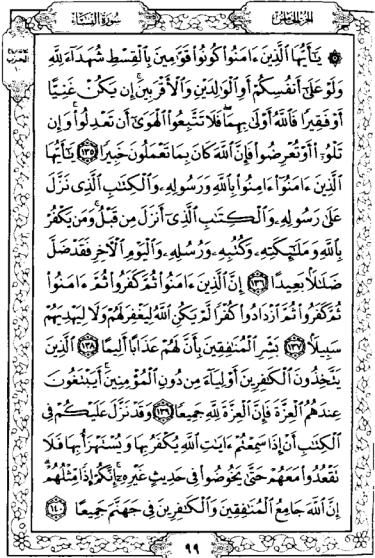 الجزء الخامس
سورة النساء
۞ يَٰٓأَيُّهَا ٱلَّذِينَ ءَامَنُوا۟ كُونُوا۟ قَوَّٰمِينَ بِٱلْقِسْطِ شُهَدَآءَ لِلَّهِ
وَلَوْ عَلَىٰٓ أَنفُسِكُمْ أَوِ ٱلْوَٰلِدَيْنِ وَٱلْأَقْرَبِينَ ۚ إِن يَكُنْ غَنِيًّا
أَوْ فَقِيرًا فَٱللَّهُ أَوْلَىٰ بِهِمَا ۖ فَلَا تَتَّبِعُوا۟ ٱلْهَوَىٰٓ أَن تَعْدِلُوا۟ ۚ وَإِن
تَلْوُۥٓا۟ أَوْ تُعْرِضُوا۟ فَإِنَّ ٱللَّهَ كَانَ بِمَا تَعْمَلُونَ خَبِيرًا ١٣٥ يَٰٓأَيُّهَا
ٱلَّذِينَ ءَامَنُوٓا۟ ءَامِنُوا۟ بِٱللَّهِ وَرَسُولِهِۦ وَٱلْكِتَٰبِ ٱلَّذِى نَزَّلَ
عَلَىٰ رَسُولِهِۦ وَٱلْكِتَٰبِ ٱلَّذِىٓ أَنزَلَ مِن قَبْلُ ۚ وَمَن يَكْفُرْ
بِٱللَّهِ وَمَلَٰٓئِكَتِهِۦ وَكُتُبِهِۦ وَرُسُلِهِۦ وَٱلْيَوْمِ ٱلْءَاخِرِ فَقَدْ ضَلَّ
ضَلَٰلًۢا بَعِيدًا ١٣٦ إِنَّ ٱلَّذِينَ ءَامَنُوا۟ ثُمَّ كَفَرُوا۟ ثُمَّ ءَامَنُوا۟
ثُمَّ كَفَرُوا۟ ثُمَّ ٱزْدَادُوا۟ كُفْرًا لَّمْ يَكُنِ ٱللَّهُ لِيَغْفِرَ لَهُمْ وَلَا لِيَهْدِيَهُمْ
سَبِيلًۢا ١٣٧ بَشِّرِ ٱلْمُنَٰفِقِينَ بِأَنَّ لَهُمْ عَذَابًا أَلِيمًا ١٣٨ ٱلَّذِينَ
يَتَّخِذُونَ ٱلْكَٰفِرِينَ أَوْلِيَآءَ مِن دُونِ ٱلْمُؤْمِنِينَ ۚ أَيَبْتَغُونَ
عِندَهُمُ ٱلْعِزَّةَ فَإِنَّ ٱلْعِزَّةَ لِلَّهِ جَمِيعًا ١٣٩ وَقَدْ نَزَّلَ عَلَيْكُمْ فِى
ٱلْكِتَٰبِ أَنْ إِذَا سَمِعْتُمْ ءَايَٰتِ ٱللَّهِ يُكْفَرُ بِهَا وَيُسْتَهْزَأُ بِهَا فَلَا
تَقْعُدُوا۟ مَعَهُمْ حَتَّىٰ يَخُوضُوا۟ فِى حَدِيثٍ غَيْرِهِۦٓ ۚ إِنَّكُمْ إِذًا مِّثْلُهُمْ ۗ
إِنَّ ٱللَّهَ جَامِعُ ٱلْمُنَٰفِقِينَ وَٱلْكَٰفِرِينَ فِى جَهَنَّمَ جَمِيعًا ١٤٠
٩٩